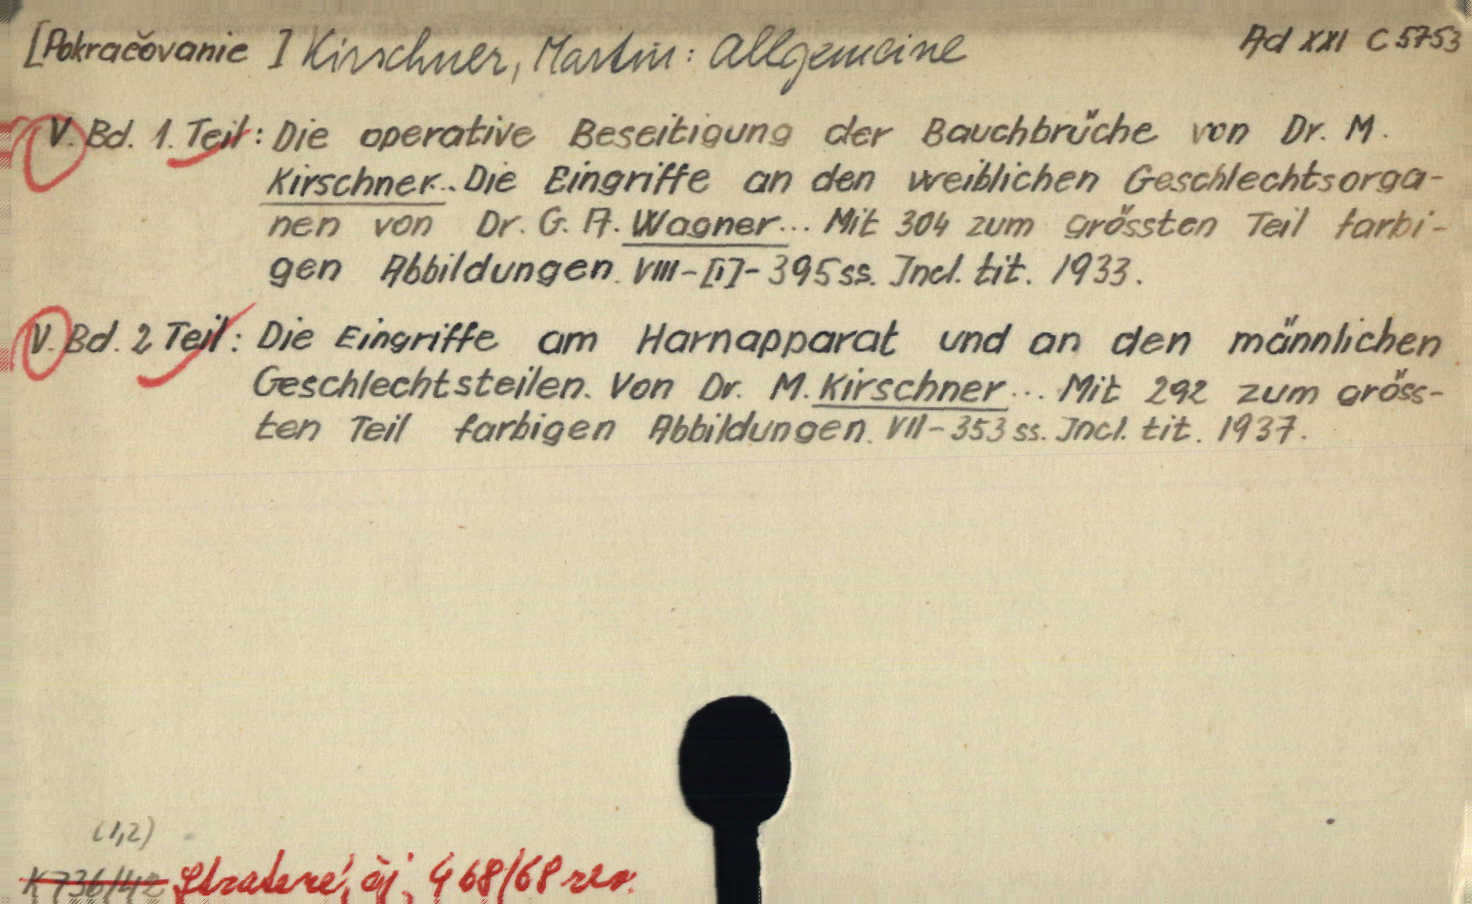 [Pokračovanie] Kirschner, Martin: Allgemeine
Ad XXI C 5753
V. Bd. 1. Teil: Die operative Beseitigung der Bauchbrüche von Dr. M.
Kirschner... Die Eingriffe an den weiblichen Geschlechtsorga-
nen von Dr. G. A. Wagner... Mit 304 zum grössten Teil farbi-
gen Abbildungen. VIII-[1]-395 ss. Incl. tit. 1933.
V. Bd. 2 Teil: Die Eingriffe am Harnapparat und an den männlichen
Geschlechtsteilen. Von Dr. M. Kirschner... Mit 292 zum gröss-
ten Teil farbigen Abbildungen. VII-353 ss. Incl. tit. 1937.
(1,2)
K 736/42 Stratené, 468/68 rev.